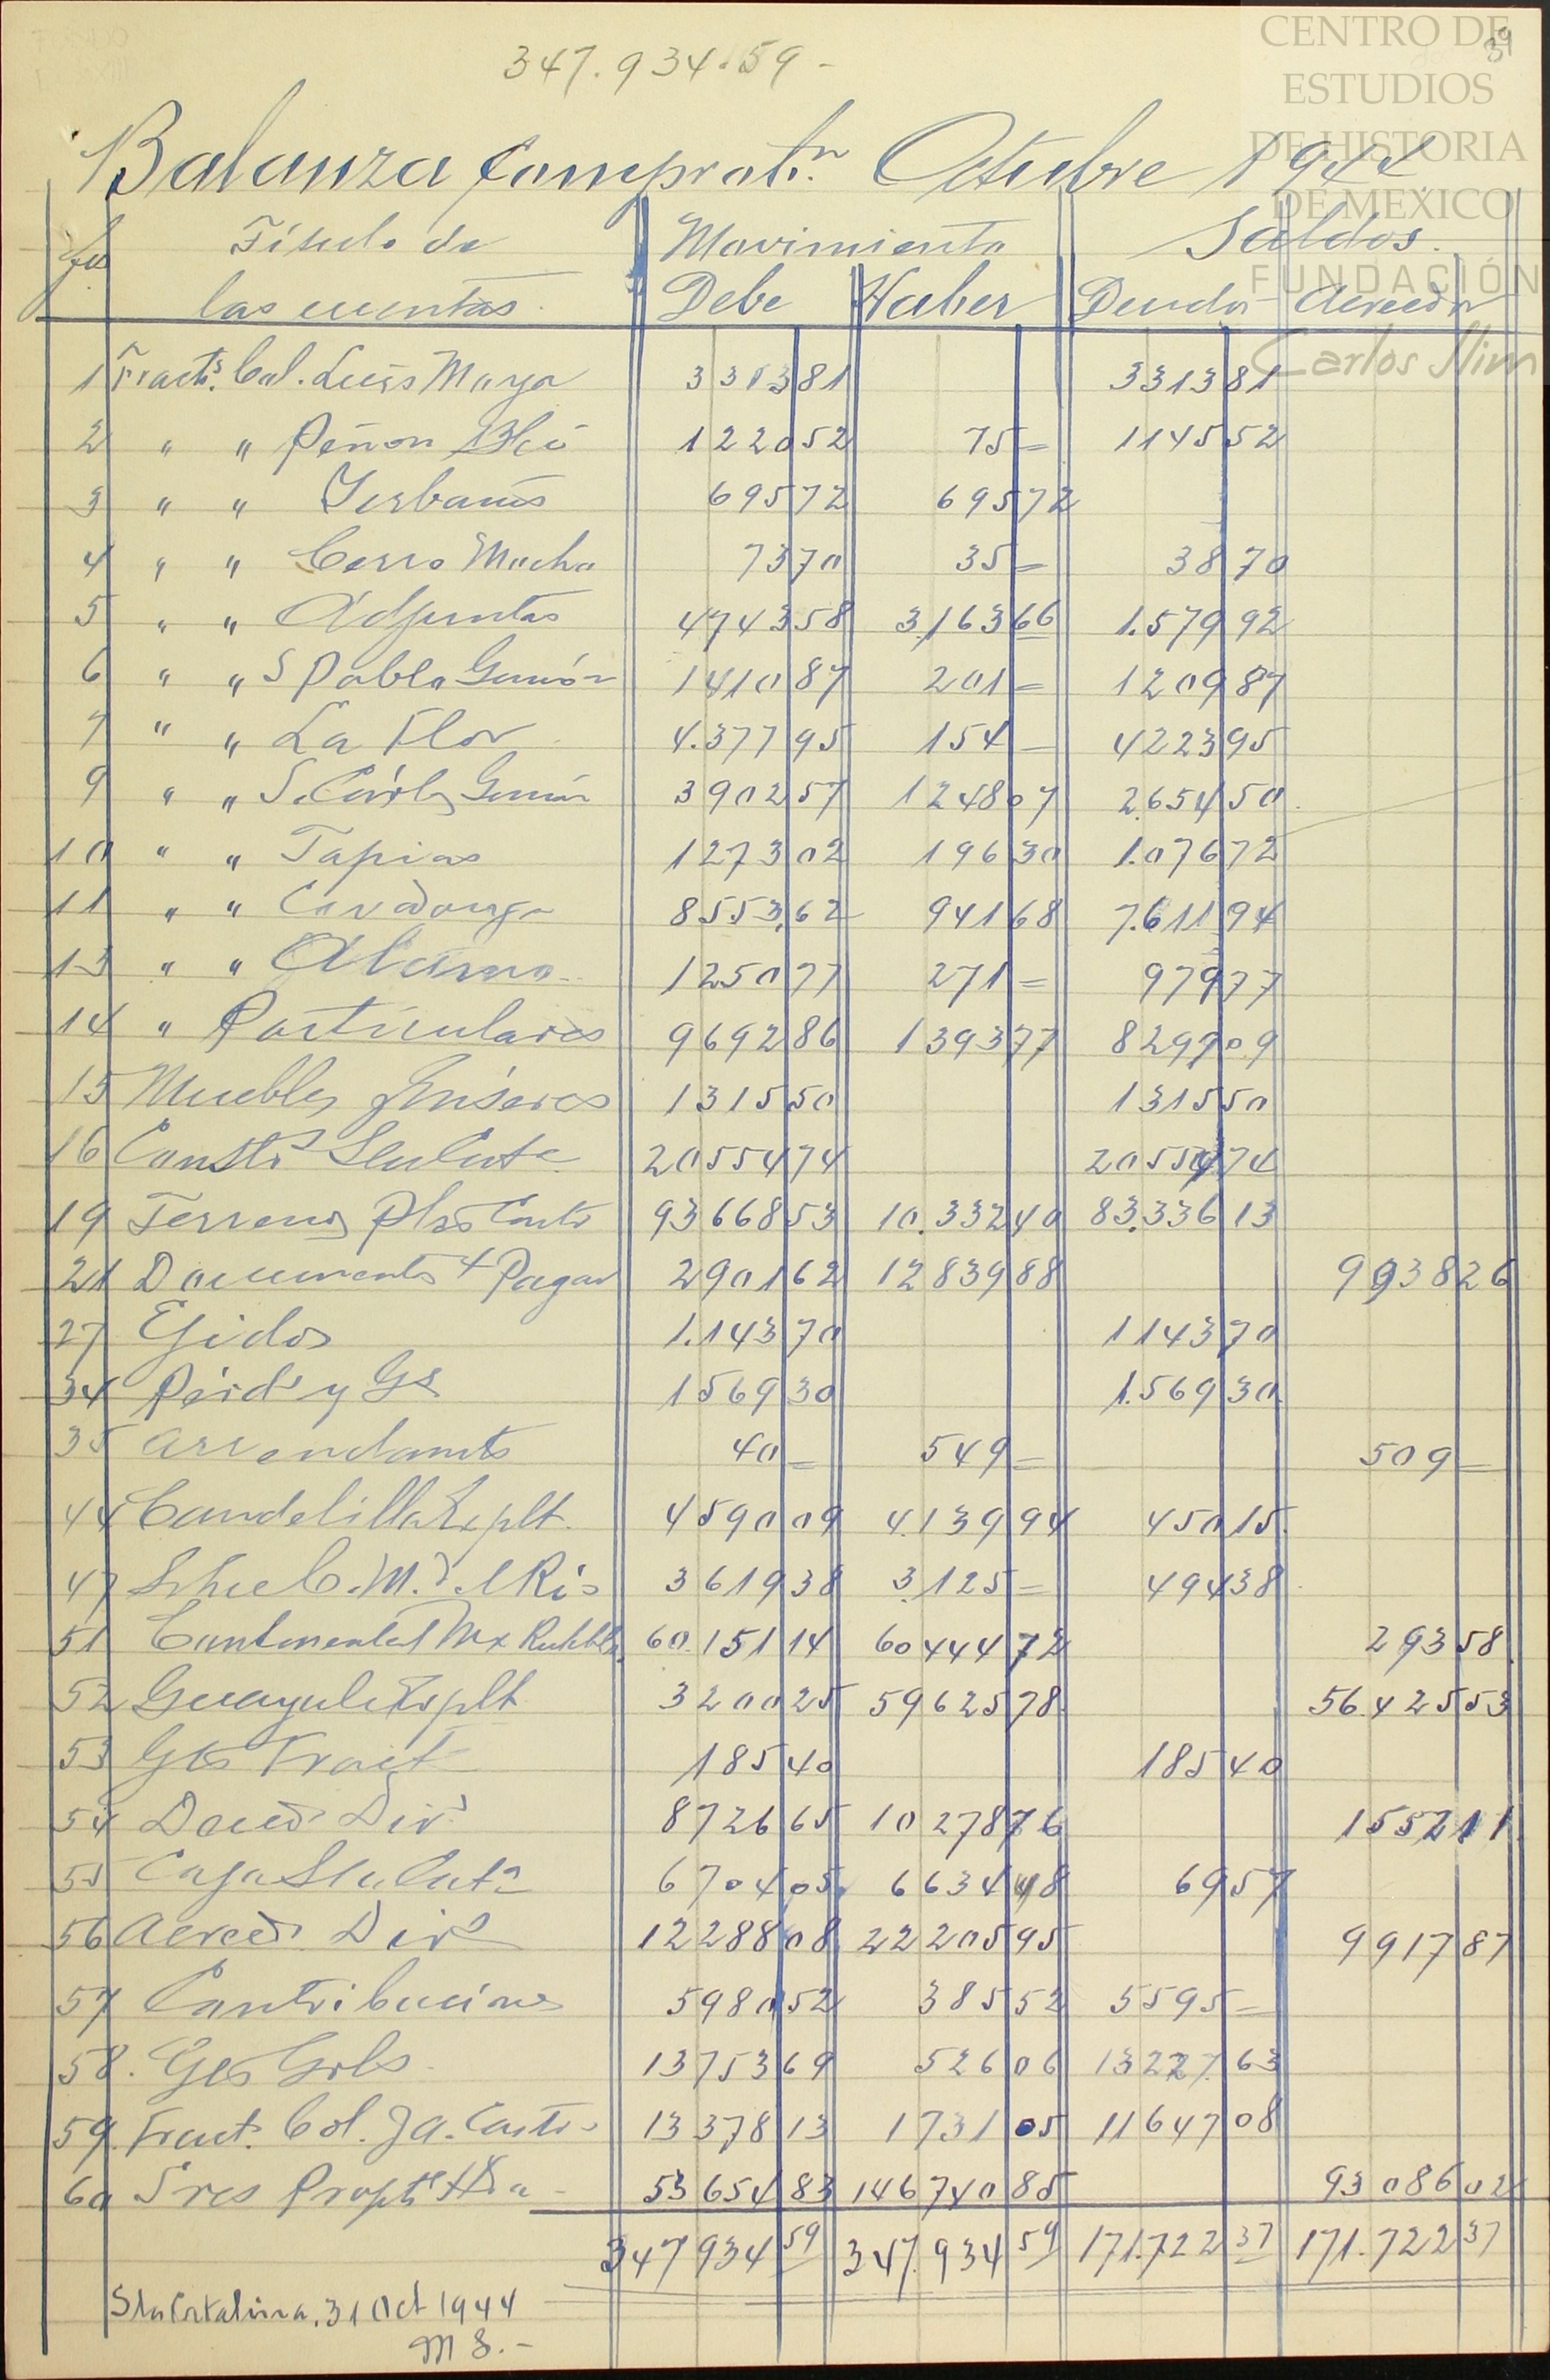 CENTRO DE
ESTUDIOS
DE HISTORIA
DE MEXICO
FUNDACIÓN
Carlos Slim
39
347.934.59-
Balanza Comprobn. Octubre 1944
Título de Movimiento Saldos.
las cuentas. Debe Haber Deudor Acreedor
1 Fracts. Col. Luis Moya 3313 81 3313 81
2 " " Peñon Blco 1220 52 75 = 1145 52
3 " " Yerbanis 695 72 695 72
4 " " Cerro Mocho 73 70 35 = 38 70
5 " " Adjuntas 4743 58 3,163 66 1.579 92
6 " " S Pablo 1410 87 201 = 1209 87
7 " " La Flor 4.377 95 154 = 4223 95
9 " " S. Carlos 3902 57 1248 07 2.654 50
10 " " Tapias 1273 02 196 30 1.076 72
11 " " Covadonga 8553,62 941 68 7.611 94
13 " " Alamo 1250 77 271 = 979 77
14 " Particulares 9692 86 1393 77 8299 09
15 Muebles y Enseres 1315 50 1315 50
16 20554 74 20554 74
19 Terrenos 93668 53 10.332 40 83.336 13
21 Documentos x Pagar 2901 62 12839 88 9938 26
27 Ejidos 1.143 70 1143 70
34 Pérds y Gs 1569 30 1.569 30
35 Arrendamts 40 = 549 = 509 =
44 Candelilla Explt. 4590 09 4.139 94 450 15
47 3619 38 3.125 = 494 38
51 Continental Mx 60.151 14 60444 72 293 58
52 Guayule Explt 3200 25 59625 78 56.425 53
53 Gts Fract 185 40 185 40
54 Deud. Divs 8726 65 10278 76 1552 11
55 Caja Sta Cata 6704 05 6634 48 69 57
56 Acreed. Divs 12288 08 22205 95 9917 87
57 Contribuciones 5980 52 385 52 5595 =
58. Gts Grls 13753 69 526 06 13227.63
59. Fract. Col. 13378 13 1731 05 11647 08
60 Sres Propts Hda 53654 83 146740 85 93086 02
347 934 59 347.934 59 171.722 37 171.722 37
Sta Catalina. 31 Oct 1944